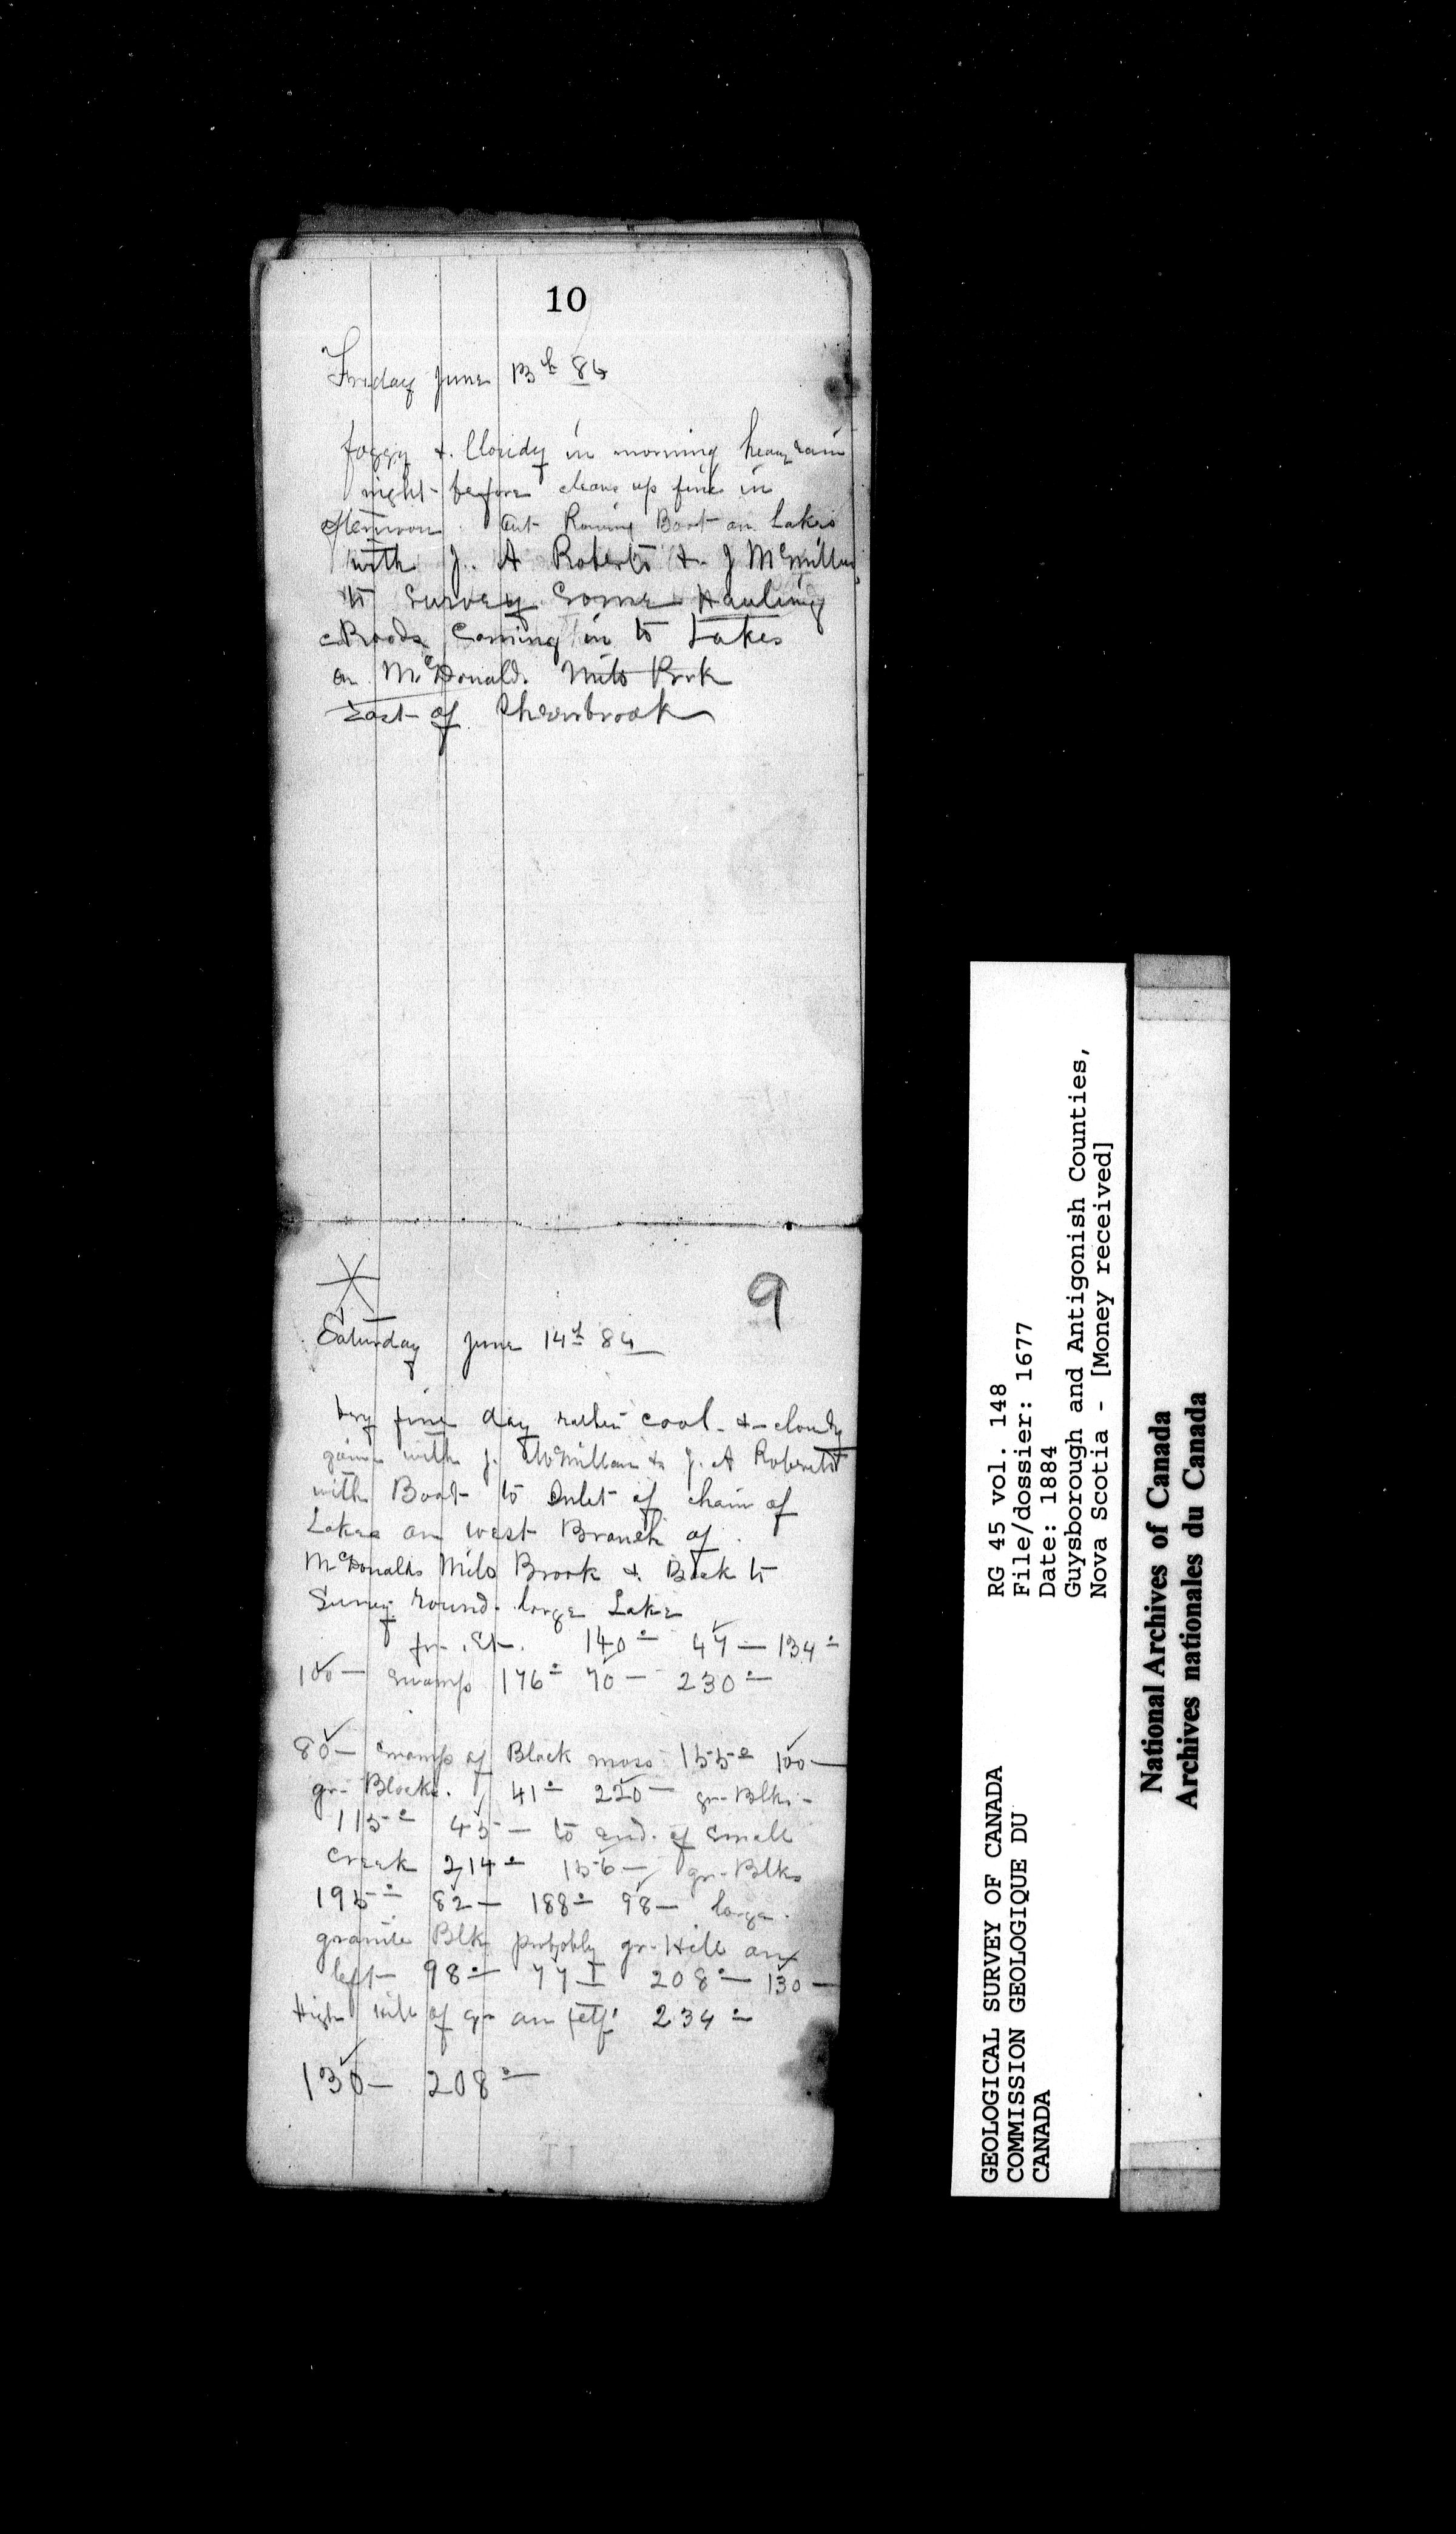 10
Friday June 13th 84
foggy & Cloudy in morning heavy rain
night before clears up fine in
afternoon. Out Rowing Boat on Lakes
with J. A Roberts & J McMillan
to Survey Some Hauling
Roads Coming in to Lakes
on McDonalds Mils Brok
East of Sherbrook
9
Saturday June 14th 84
Very fine day rather cool & cloudy
with J. McMillan & J. A Roberts
with Boat to Inlet of chain of
Lakes on west Branch of
McDonalds Mils Brook & Back to
Survey round large Lake
fr. St. 140° 47 — 134°
100 — swamp 176° 70 — 230°
80 — swamp of Black moss 155° 100 —
gr- Blocks. 41° 220 — gr-Blks-
115° 45 — to end of Small
Creek 214° 156 — gr-Blks
195° 82 — 188° 98 — large
granite Blk probably gr-Hill on
left 98° 77 I 208° 130 —
High Hill of gr on left 234°
130 — 208°
RG 45 vol. 148
File/dossier: 1677
Date: 1884
Guysborough and Antigonish Counties,
Nova Scotia - [Money received]
GEOLOGICAL SURVEY OF CANADA
COMMISSION GEOLOGIQUE DU
CANADA
National Archives of Canada
Archives nationales du Canada